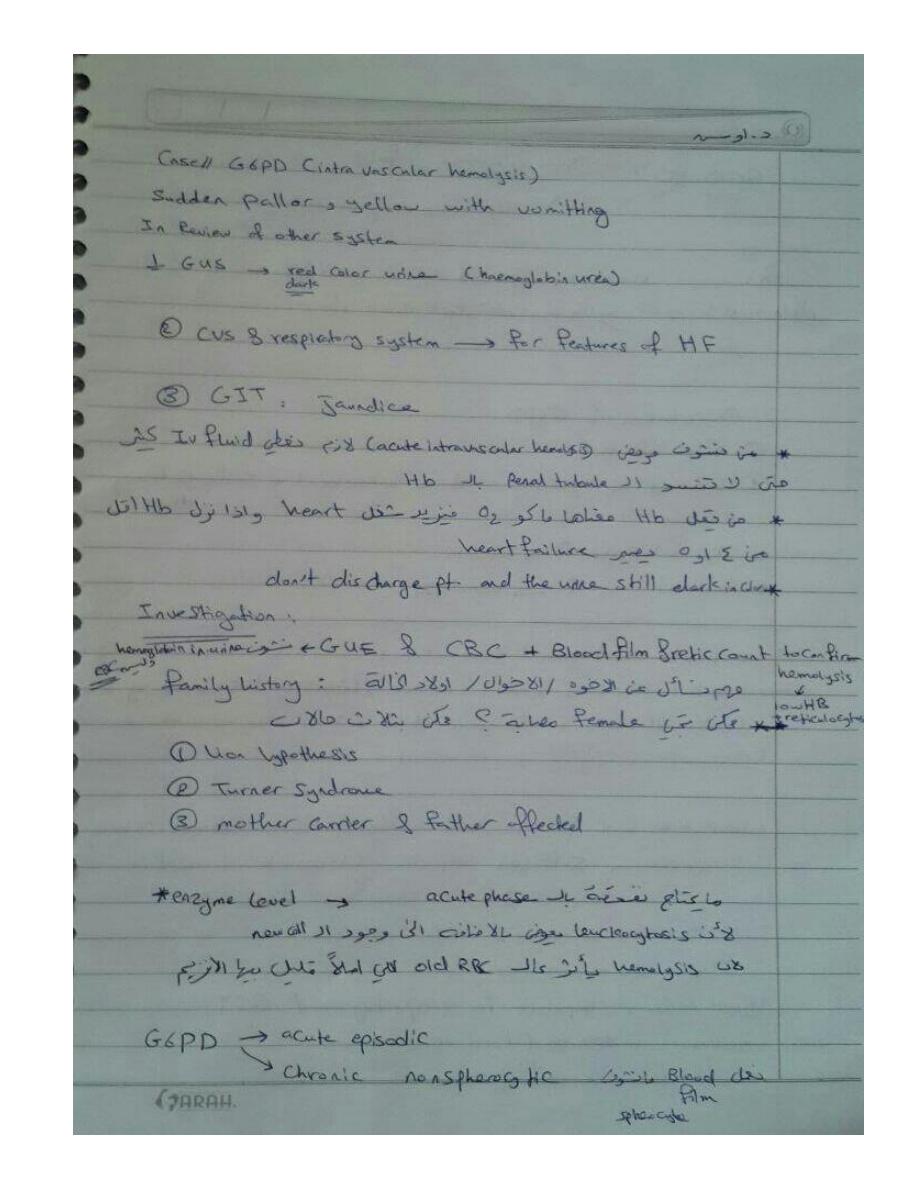 د. اوس
Case// G6PD (intra vascular hemolysis)
Sudden pallor, yellow with vomitting
In Review of other system
1 GUS → red color urine (haemoglobin urea)
dark
② CVS & respiratory system → for features of HF
③ GIT : Jaundice
* من نشوف مريض (acute intravascular hemolysis) لازم نعطي IV fluid كثير
حتى لا تنسد ال Renal tubule بالـ Hb
* من يقل Hb معناها ماكو O₂ فيزيد شغل heart واذا نزل Hb اقل
من ٤ او ٥ يصير heart failure
* don't discharge pt. and the urine still dark in
Investigation :
hemoglobin in urine نشوف ← GUE & CBC + Blood film & retic count to confirm
وليس RBC
hemolysis
↓
low HB
reticulocyte
family history : مهم نسأل عن الاخوه / الاخوال / اولاد الخالة
** ممكن تجي female مصابة ؟ ممكن بثلاث حالات
① Lion hypothesis
② Turner Syndrome
③ mother carrier & father affected
*enzyme level → مايحتاج نفحصة بالـ acute phase
لأن leuckocytosis يعوض بالاضافة الى وجود ال new cell
لان hemolysis يأثر عالـ old RBC اللي اصلاً قليل بيها الأنزيم
G6PD → acute episodic
↘ Chronic nonspherocytic نعمل Blood film مانشوف
spherocyte
SARAH.